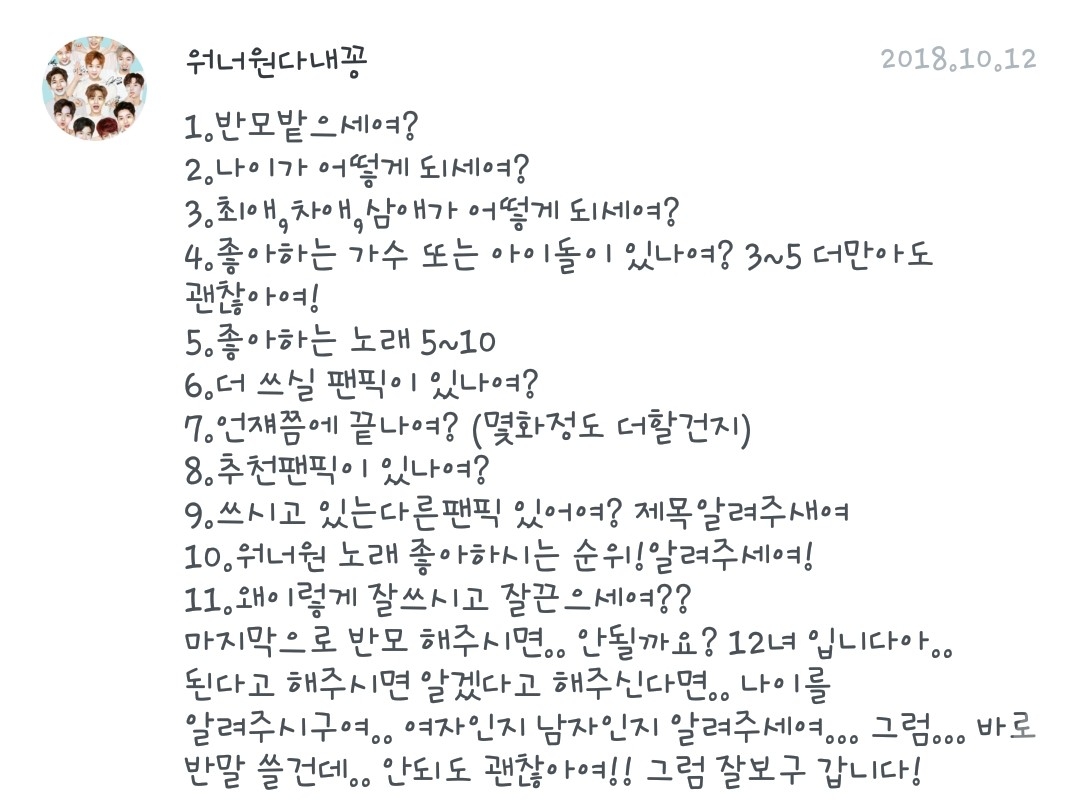 워너원다내꽁
2018.10.12
1.반모밭으세여?
2.나이가 어떻게 되세여?
3.최애,차애,삼애가 어떻게 되세여?
4.좋아하는 가수 또는 아이돌이 있나여? 3~5 더만아도
괜찮아여!
5.좋아하는 노래 5~10
6.더 쓰실 팬픽이 있나여?
7.언쟤쯤에 끝나여? (몇화정도 더할건지)
8.추천팬픽이 있나여?
9.쓰시고 있는다른팬픽 있어여? 제목알려주새여
10.워너원 노래 좋아하시는 순위!알려주세여!
11.왜이렇게 잘쓰시고 잘끈으세여??
마지막으로 반모 해주시면.. 안될까요? 12녀 입니다아..
된다고 해주시면 알겠다고 해주신다면.. 나이를
알려주시구여.. 여자인지 남자인지 알려주세여... 그럼... 바로
반말 쓸건데.. 안되도 괜찮아여!! 그럼 잘보구 갑니다!